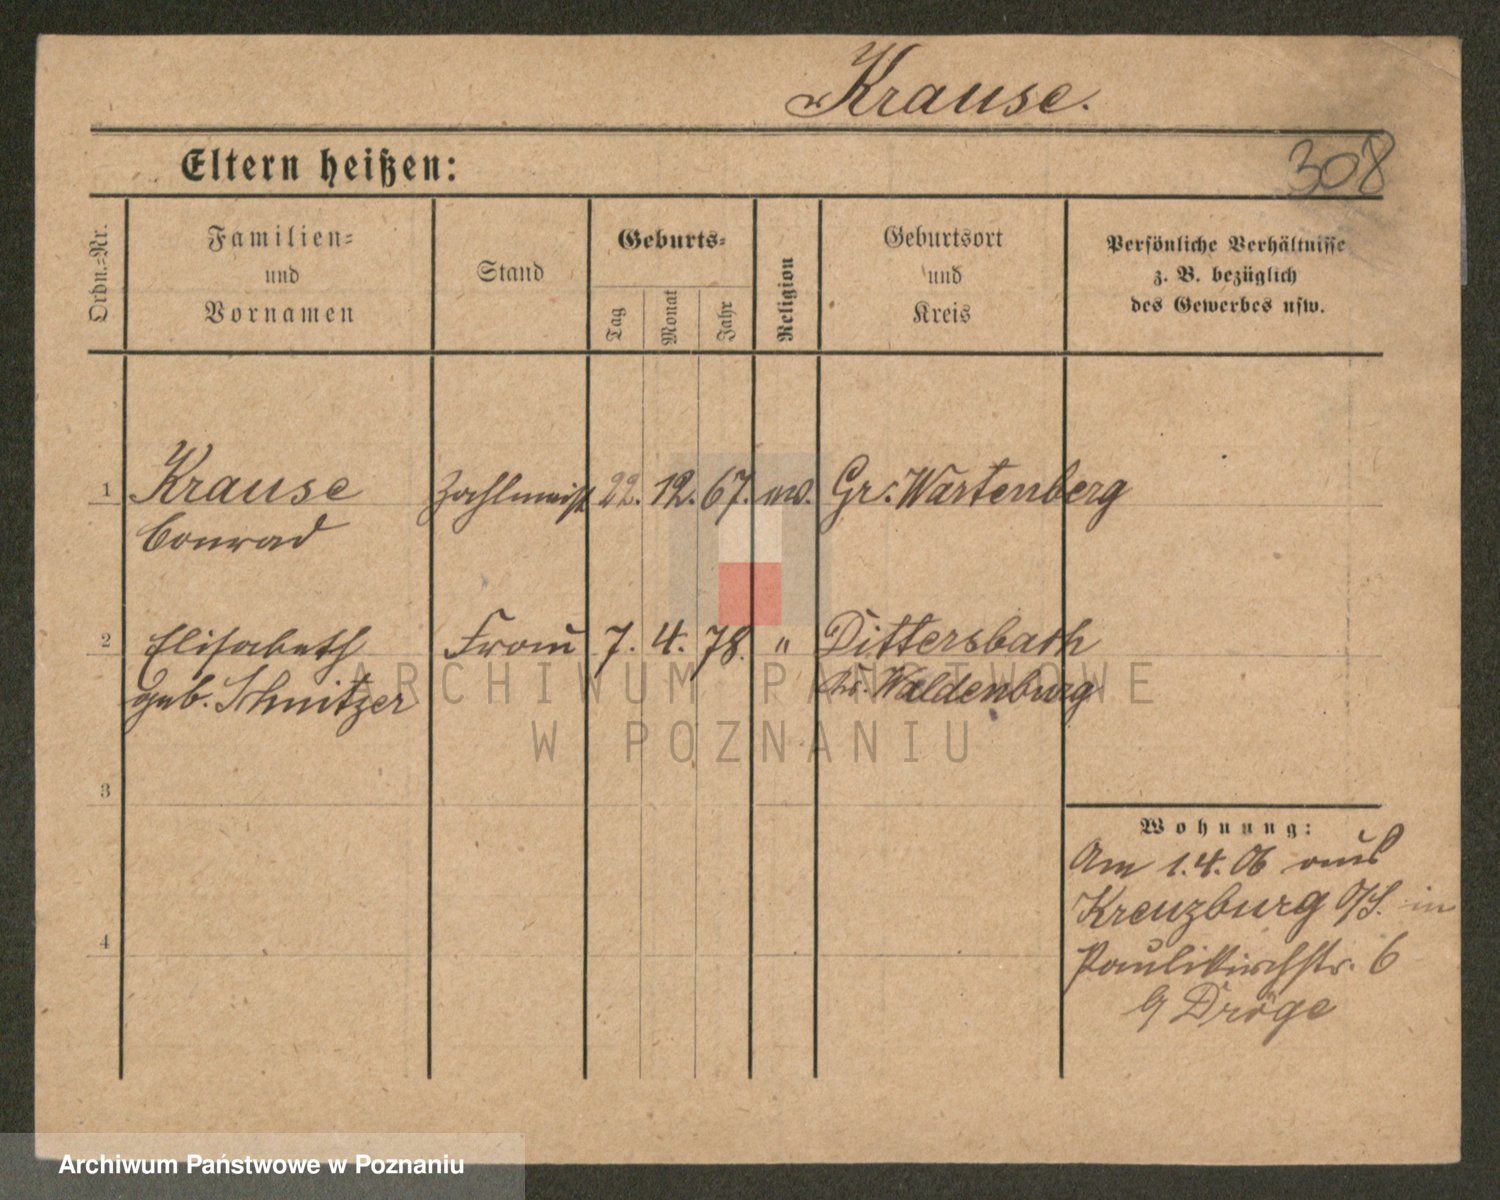 Krause.
308
Eltern heißen:
Ordn.-Nr.
Familien-
und
Vornamen
Stand
Geburts-
Tag
Monat
Jahr
Religion
Geburtsort
und
Kreis
Persönliche Verhältnisse
z. B. bezüglich
des Gewerbes usw.
1 Krause Zahlmeist 22. 12. 67. ev. Gr. Wartenberg
Conrad
2 Elisabeth Frau 7. 4. 78. " Dittersbach
geb. Schnitzer Kr. Waldenburg
3
4
Wohnung:
Am 1.4.06 aus
Kreuzburg O/S. in
Paulikirchstr. 6
Dröge
ARCHIWUM PAŃSTWOWE
W POZNANIU
Archiwum Państwowe w Poznaniu